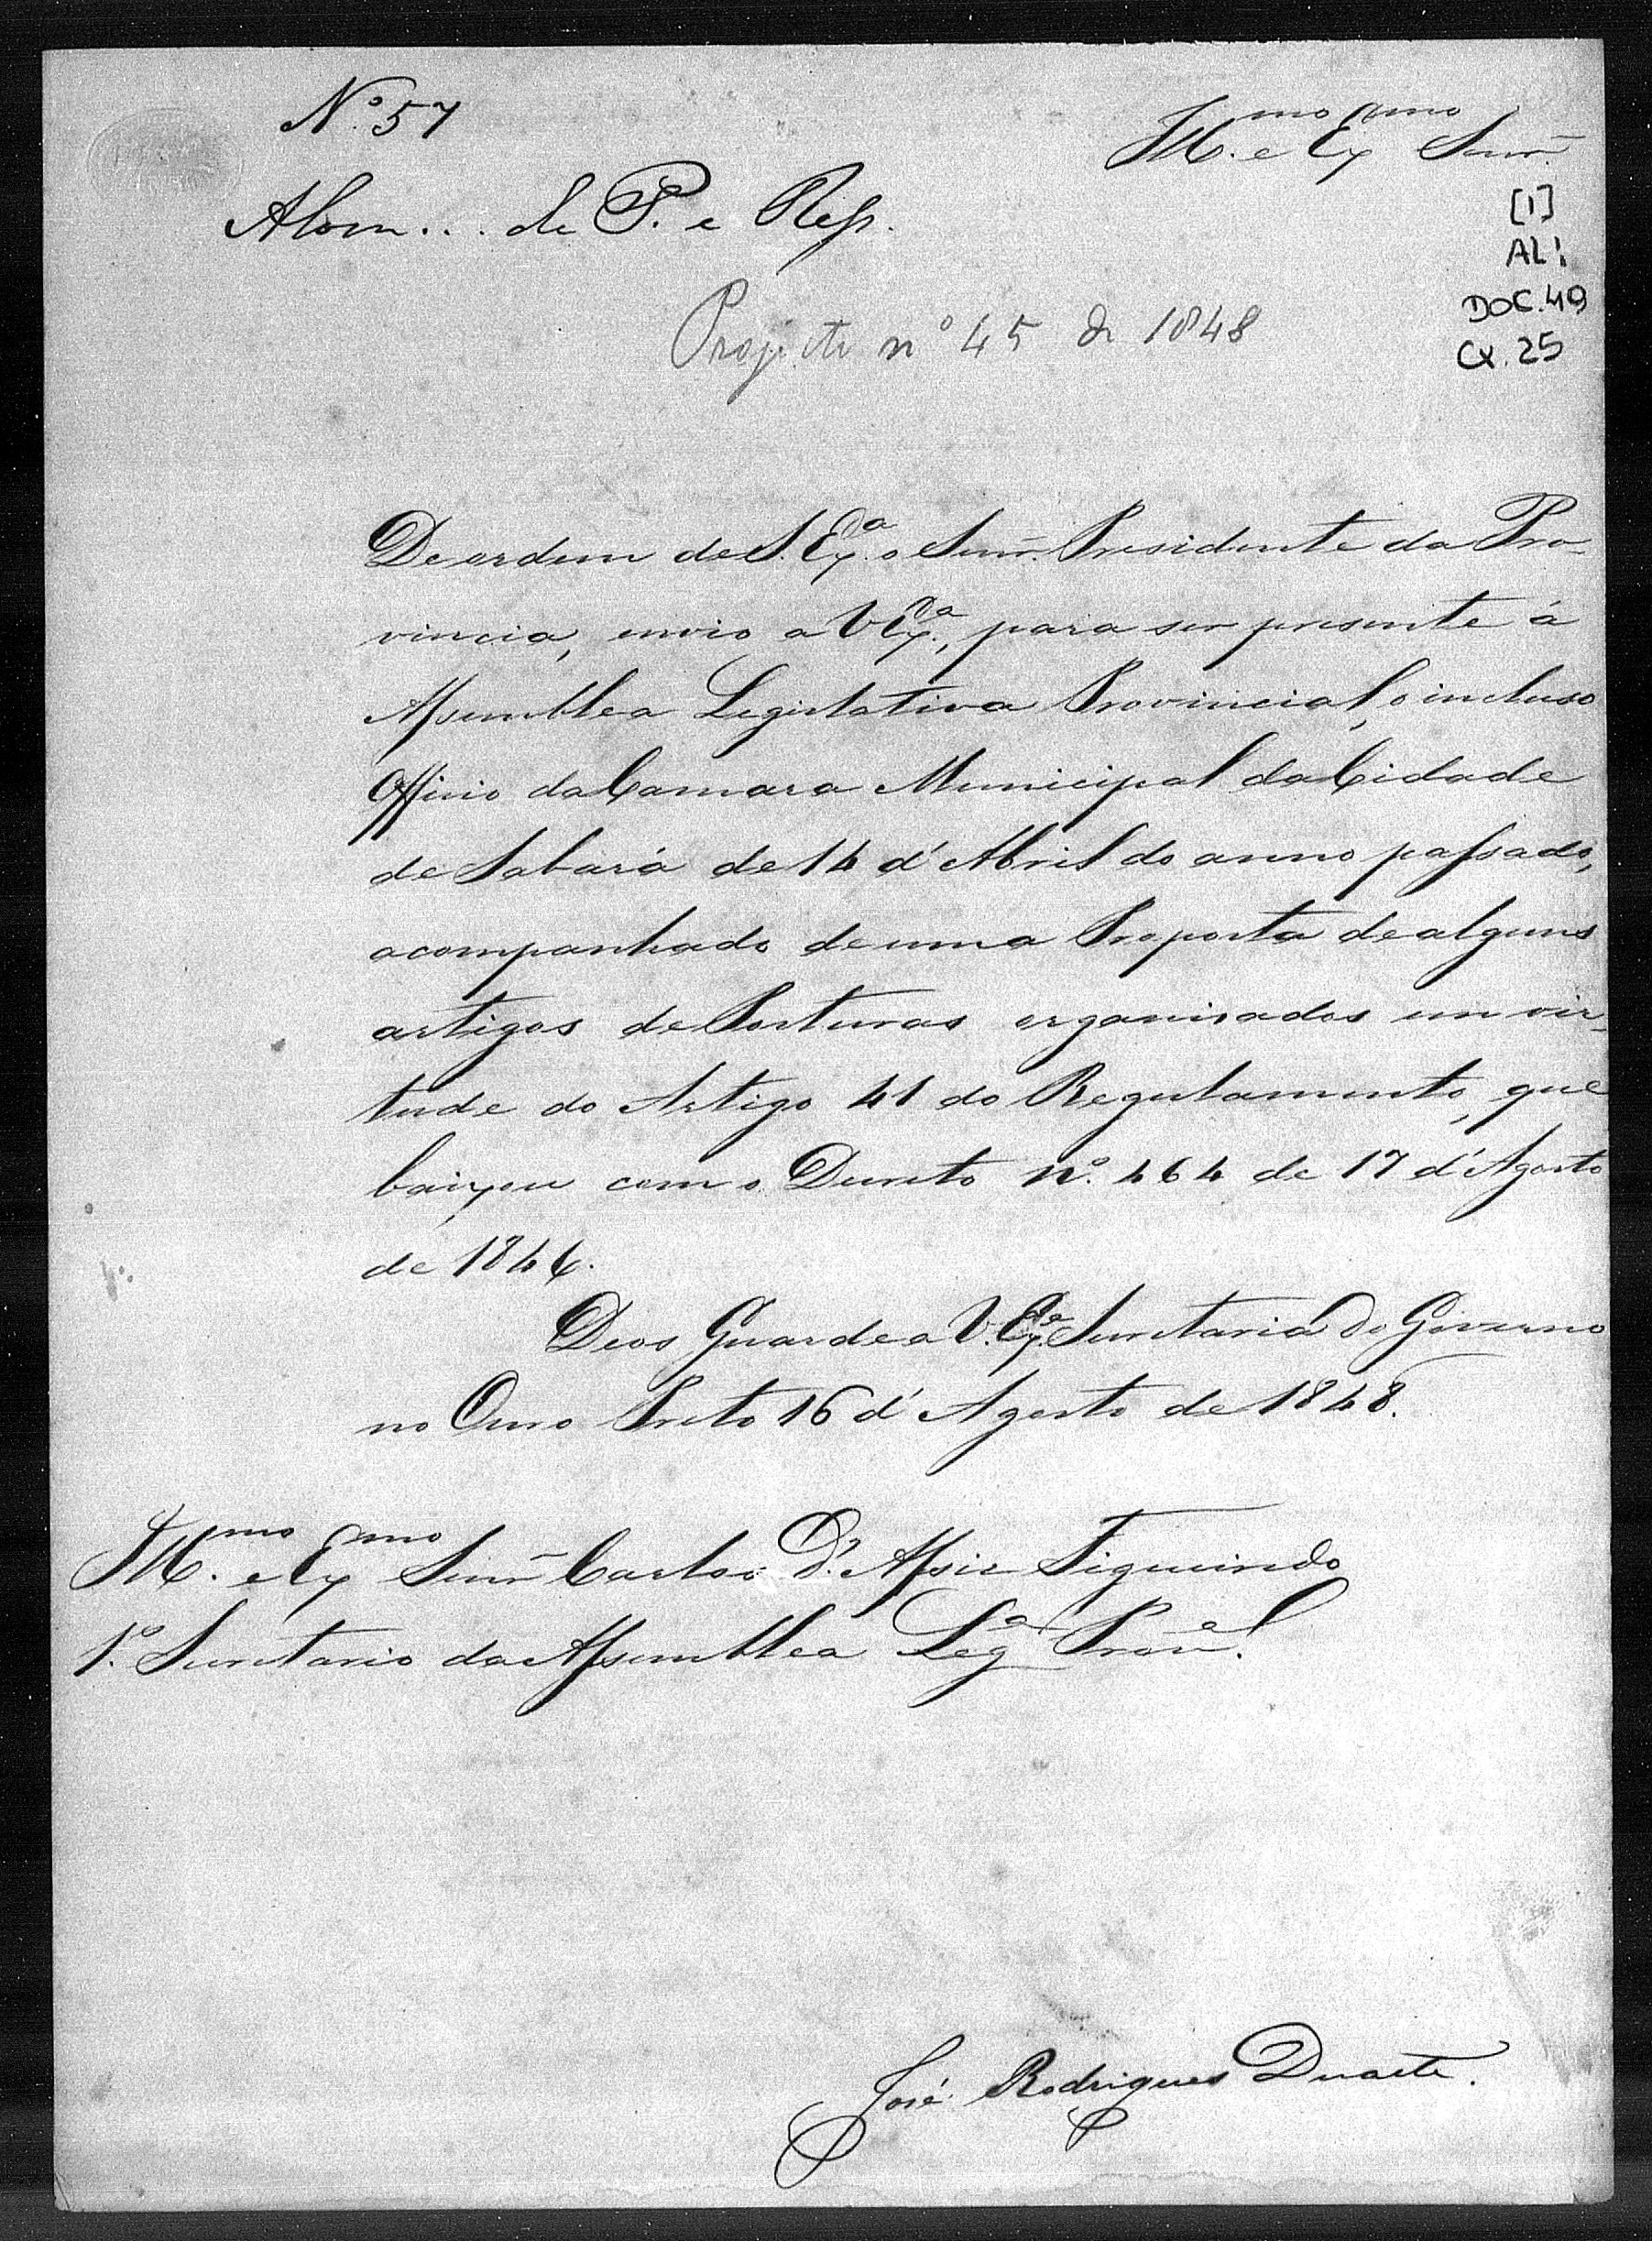 N.º 57
Ill.mo e Ex.mo Senr.
A Com... de P. e Rep.
[1]
AL1
DOC. 49
CX. 25
Projecto nº 45 de 1848
De ordem de S. Ex.ª o Senr. Presidente da Pro-
vincia, envio a V Ex.ª, para ser presente á
Assemblea Legislativa Provincial, o incluso
Officio da Camara Municipal da Cidade
de Sabará de 14 d'Abril do anno passado,
acompanhado de uma Proposta de alguns
artigos de Posturas organisados em vir-
tude do Artigo 41 do Regulamento, que
baixou com o Decreto n.º 464 de 17 d'Agosto
de 1846.
Deos Guarde a V. Ex.ª Secretaria do Governo
no Ouro Preto 16 d'Agosto de 1848.
Ill.mo e Ex.mo Senr. Carlos d'Assis Figueiredo
1.º Secretario da Assemblea Leg.ª Prov.al
José Rodrigues Duarte.